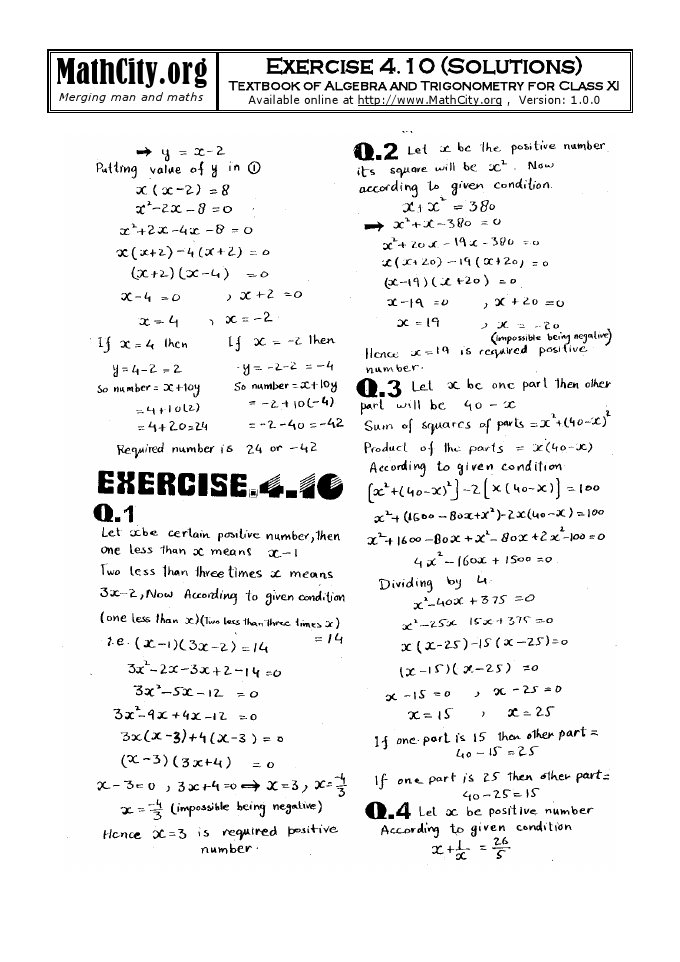 MathCity.org
Merging man and maths
EXERCISE 4.10 (SOLUTIONS)
TEXTBOOK OF ALGEBRA AND TRIGONOMETRY FOR CLASS XI
Available online at http://www.MathCity.org , Version: 1.0.0
⇒ y = x-2
Putting value of y in ①
x(x-2) = 8
x²-2x-8=0
x²+2x-4x-8=0
x(x+2)-4(x+2)=0
(x+2)(x-4) =0
x-4=0 , x+2=0
x=4 , x=-2
If x=4 then If x=-2 then
y=4-2=2 y=-2-2=-4
So number=x+10y So number=x+10y
=4+10(2) =-2+10(-4)
=4+20=24 =-2-40=-42
Required number is 24 or -42
EXERCISE.4.10
Q.1
Let x be certain positive number, then
one less than x means x-1
Two less than three times x means
3x-2, Now According to given condition
(one less than x)(Two less than three times x)
=14
i.e. (x-1)(3x-2)=14
3x²-2x-3x+2-14=0
3x²-5x-12 =0
3x²-9x+4x-12 =0
3x(x-3)+4(x-3)=0
(x-3)(3x+4) =0
x-3=0 , 3x+4=0 ⇔ x=3, x=-4/3
x=-4/3 (impossible being negative)
Hence x=3 is required positive
number.
...
Q.2 Let x be the positive number
it's square will be x². Now
according to given condition.
x+x² = 380
⇒ x²+x-380 =0
x²+20x-19x-380=0
x(x+20)-19(x+20)=0
(x-19)(x+20) =0
x-19=0 , x+20=0
x=19 , x=-20
(impossible being negative)
Hence x=19 is required positive
number.
Q.3 Let x be one part then other
part will be 40-x
Sum of squares of parts =x²+(40-x)²
Product of the parts = x(40-x)
According to given condition
[x²+(40-x)²]-2[x(40-x)]=100
x²+(1600-80x+x²)-2x(40-x)=100
x²+1600-80x+x²-80x+2x²-100=0
4x²-160x+1500=0
Dividing by 4
x²-40x+375=0
x²-25x 15x+375=0
x(x-25)-15(x-25)=0
(x-15)(x-25) =0
x-15=0 , x-25=0
x=15 , x=25
If one part is 15 then other part=
40-15=25
If one part is 25 then other part=
40-25=15
Q.4 Let x be positive number
According to given condition
x+1/x = 26/5